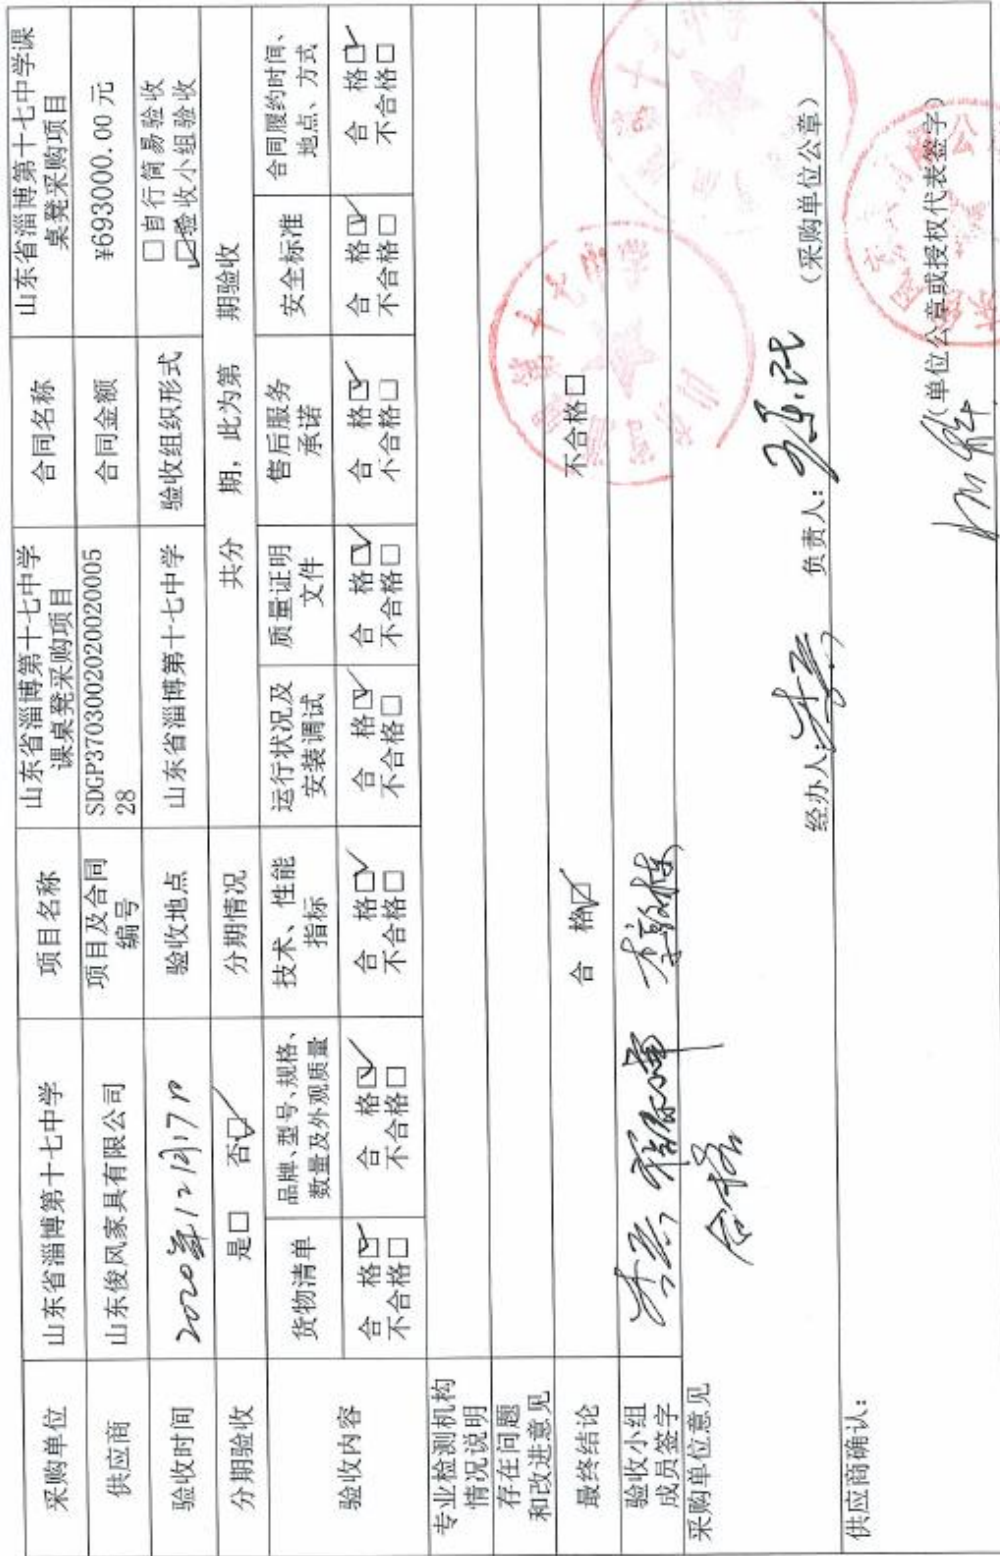 采购单位 山东省淄博第十七中学 项目名称 山东省淄博第十七中学
课桌凳采购项目 合同名称 山东省淄博第十七中学课
桌凳采购项目
供应商 山东俊风家具有限公司 项目及合同
编号 SDGP3703002020020005
28 合同金额 ¥693000.00元
验收时间 2020年12月17日 验收地点 山东省淄博第十七中学 验收组织形式 □自行简易验收
☑验收小组验收
分期验收 是□ 否☑ 分期情况 共分 期，此为第 期验收
验收内容
货物清单
品牌、型号、规格、
数量及外观质量
技术、性能
指标
运行状况及
安装调试
质量证明
文件
售后服务
承诺
安全标准
合同履约时间、
地点、方式
合 格☑
不合格□
合 格☑
不合格□
合 格☑
不合格□
合 格☑
不合格□
合 格☑
不合格□
合 格☑
不合格□
合 格☑
不合格□
合 格☑
不合格□
专业检测机构
情况说明
存在问题
和改进意见
最终结论 合 格☑ 不合格□
验收小组
成员签字
采购单位意见
经办人： 负责人： （采购单位公章）
供应商确认：
（单位公章或授权代表签字）